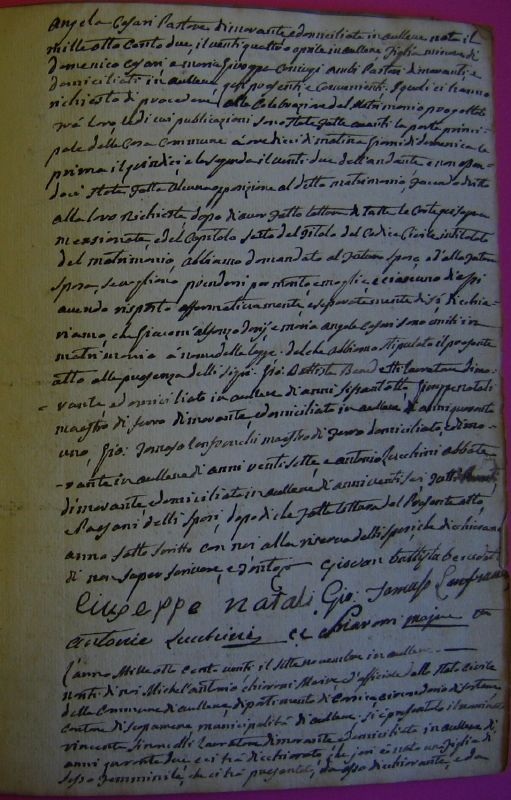 Angela Cesari Pastore dimorante e domiciliata in aullene nata il
mille otto Cento due, il venti quattro aprile in aullene figlia minore di
domenico Cesari e maria Coniugi ambi Pastori dimoranti e
domiciliati in aullene qui presenti e Consenzienti. I quali ci hanno
richiesto di procedere alla Celebrazione del Matrimonio progettato
trà loro e di cui publicazioni sono state fatte avanti la porta princi-
pale della Casa Commune à ore dieci di matina giorni di domenica la
prima il quindici e la seconda il venti due dell'andante e non essen-
doci stata fatta alcuna opposizione al detto matrimonio, facendo dritto
alla loro richiesta dopo di aver fatto lettura di tutte le Carte quì sopra
menzionate, e del Capitolo sesto del Titolo del Codice Civile intitolato
del matrimonio, abbiamo domandato al futuro sposo, e dalla futura
sposa, se vogliono prendersi per marito e moglie, e ciascuno di essi
avendo risposto affermativamente, e separatamente di sì dichia-
riamo, che Giacom'alfonzo e maria angela Cesari sono uniti in
matrimonio à nome della legge: del che abbiamo stipulato il presente
atto alla presenza delli sigri. Gio: Battista lavoratore dimo-
rante, e domiciliato in aullene di anni sessantotto Giuseppe natali
maestro di ferro dimorante, e domiciliato in aullene di anni quaranta
uno, Gio: Tomaso Lanfranchi maestro di ferro domiciliato, e dimo-
rante in aullene di anni venti sette, e antonio Lucchini abbate
dimorante, e domiciliato in aullene di anni venti sei
e Paesani delli sposi, dopo di che fatta lettura del Presente atto
anno sotto scritto con noi alla riserva delli sposi che dichiarano
di non saper scrivere, Giovan battista
Giuseppe natali Gio: Tomaso Lanfranchi
antonio Lucchini Chiaroni maire
L'anno Mille otto Cento venti, il sette novembre in aullene
nanti di noi Michel'antonio chiaroni Maire d'officiale dello stato Civile
della Commune d'aullene, dipartimento di Corsica circondario di Sartene
Cantone di Scopamene municipalità di aullene. si è presentato il nominato
vincente lavoratore dimorante, e domiciliato in aullene di
anni quaranta due e ci hà dichiarato, che jeri è nata una figlia di
sesso femminile, che ci hà presentato, da esso dichiarante, e da